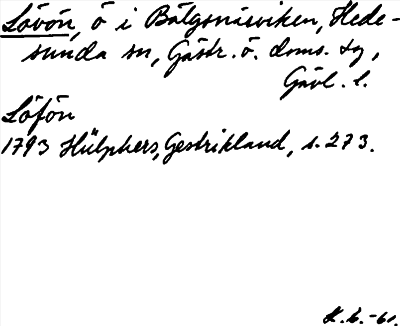 Lövön, ö i Bälgsnäsviken, Hede-
sunda sn, Gästr. ö. doms. tg,
Gävl. l.
Löfön
1793 Hülphers, Gestrikland, s. 273.